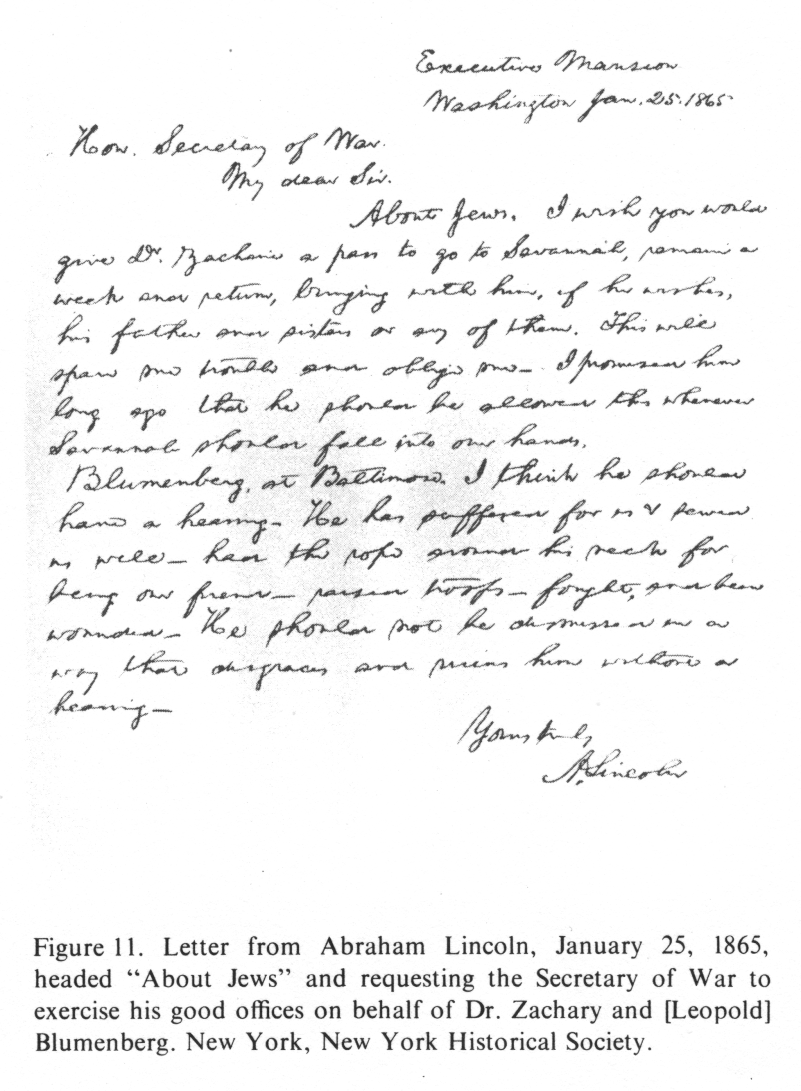 Executive Mansion
Washington Jan. 25. 1865
Hon. Secretary of War.
My dear Sir.
About Jews. I wish you would
give Dr. Zacharie a pass to go to Savannah, remain a
week and return, bringing with him, if he wishes,
his father and sisters or any of them. This will
spare me trouble and oblige me— I promised him
long ago that he should be allowed this whenever
Savannah should fall into our hands.
Blumenberg, at Baltimore. I think he should
have a hearing— He has suffered for us & served
us well— had the rope around his neck for
being our friend— raised troops— fought, and been
wounded— He should not be dismissed in a
way that disgraces and ruins him without a
hearing—
Yours truly
A. Lincoln
Figure 11. Letter from Abraham Lincoln, January 25, 1865,
headed “About Jews” and requesting the Secretary of War to
exercise his good offices on behalf of Dr. Zachary and [Leopold]
Blumenberg. New York, New York Historical Society.